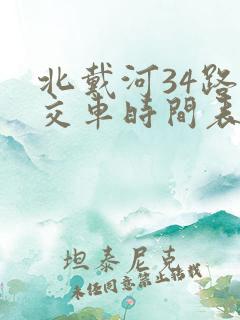 北戴河34路
交车時間表
坦泰尼克
未经同意禁止转载